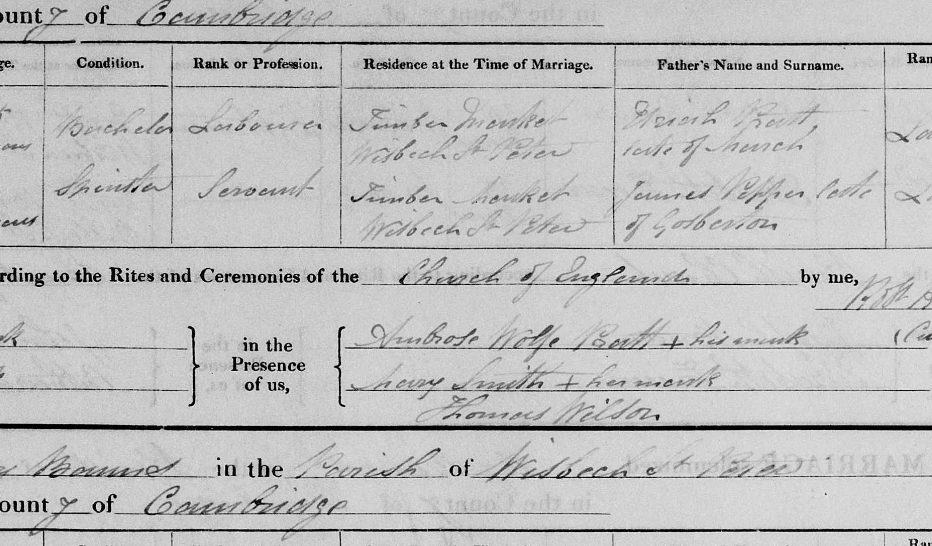 ounty of Cambridge
ge. Condition. Rank or Profession. Residence at the Time of Marriage. Father's Name and Surname. Ran
Bachelor Labourer Timber Market Uriah Bratt
Wisbech St Peter late of March
Spinster Servant Timber Market James Pepper late
Wisbech St Peter of Gosberton
rding to the Rites and Ceremonies of the Church of England by me,
in the Presence of us,
Ambrose Wolfe Bratt + his mark
Mary Smith + her mark
Thomas Wilson
Banns in the Parish of Wisbech St Peter
ounty of Cambridge
Ran